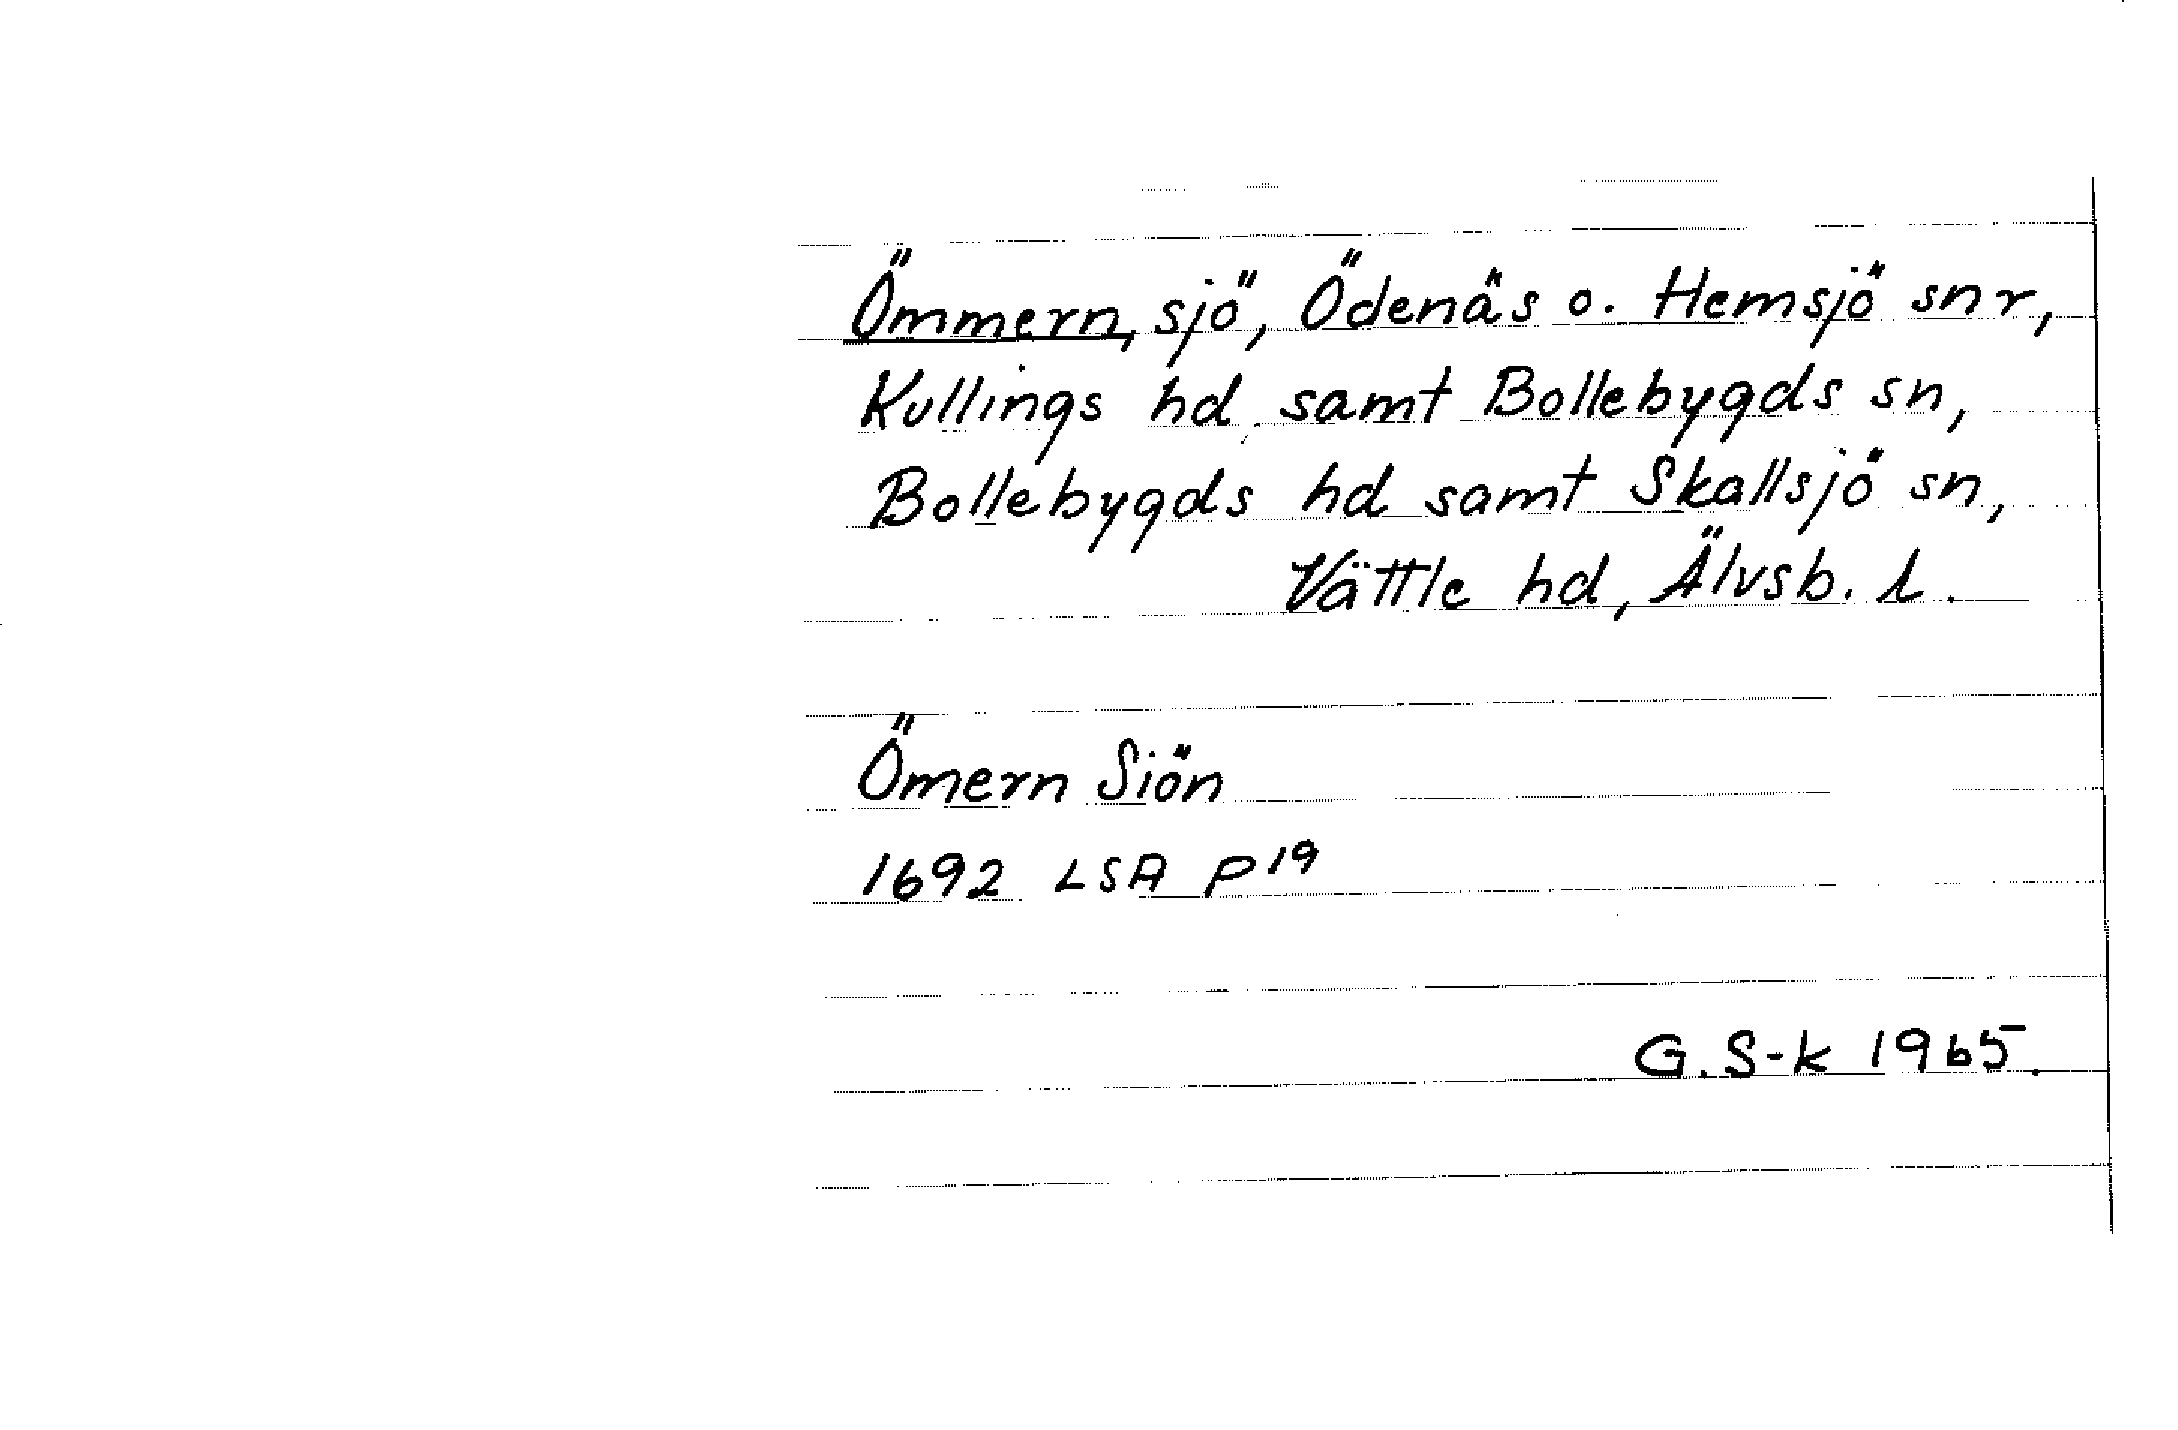 Ömmern, sjö, Ödenäs o. Hemsjö snr,
Kullings hd samt Bollebygds sn,
Bollebygds hd samt Skallsjö sn,
Vättle hd, Älvsb. l.
Ömern Siön
1692 LSA P19
G. S-k 1965.